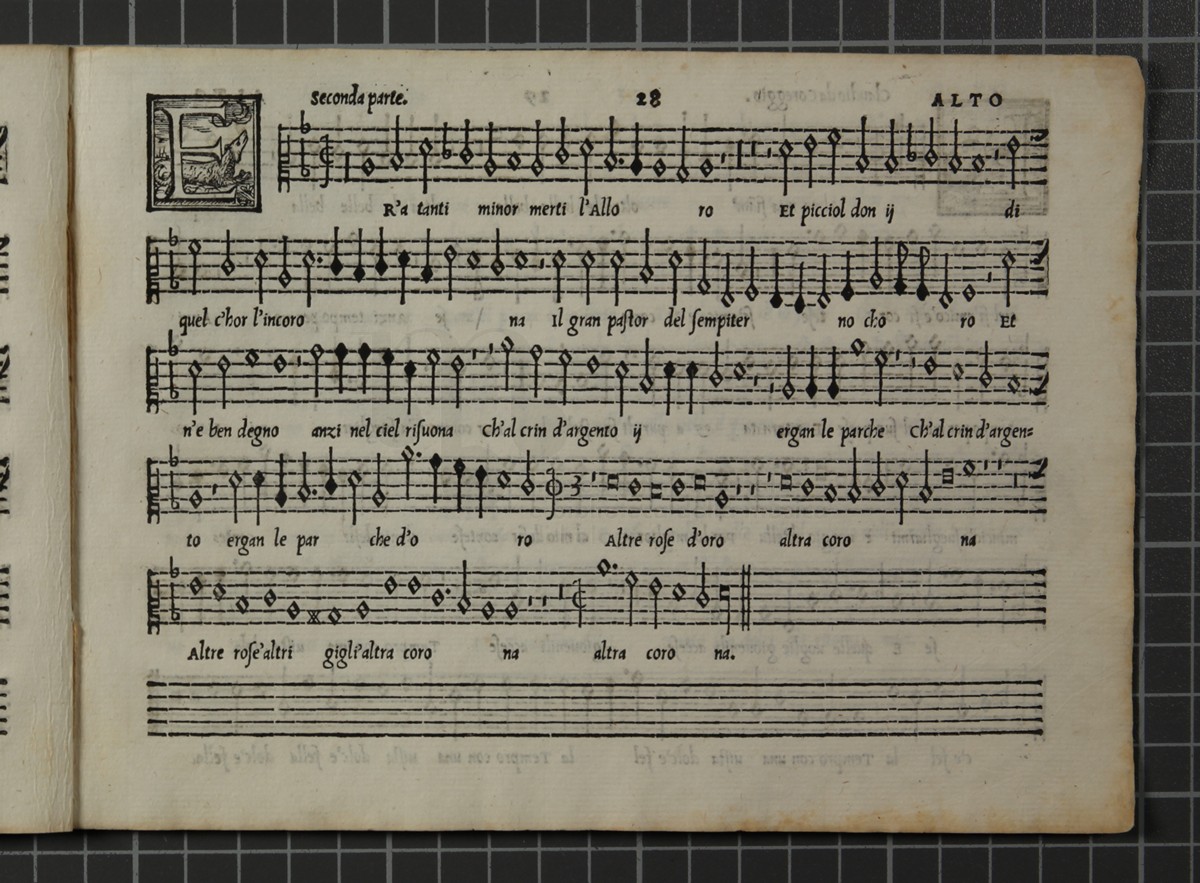 Seconda parte. 28 ALTO
FR'a tanti minor merti l'Allo ro Et picciol don ij di
quel c'hor l'incoro na Il gran pastor del sempiter no cho ro Et
n'e ben degno anzi nel ciel risuona Ch'al crin d'argento ij ergan le parche Ch'al crin d'argen=
to ergan le par che d'o ro Altre rose d'oro altra coro na
Altre rose'altri gigli'altra coro na altra coro na.